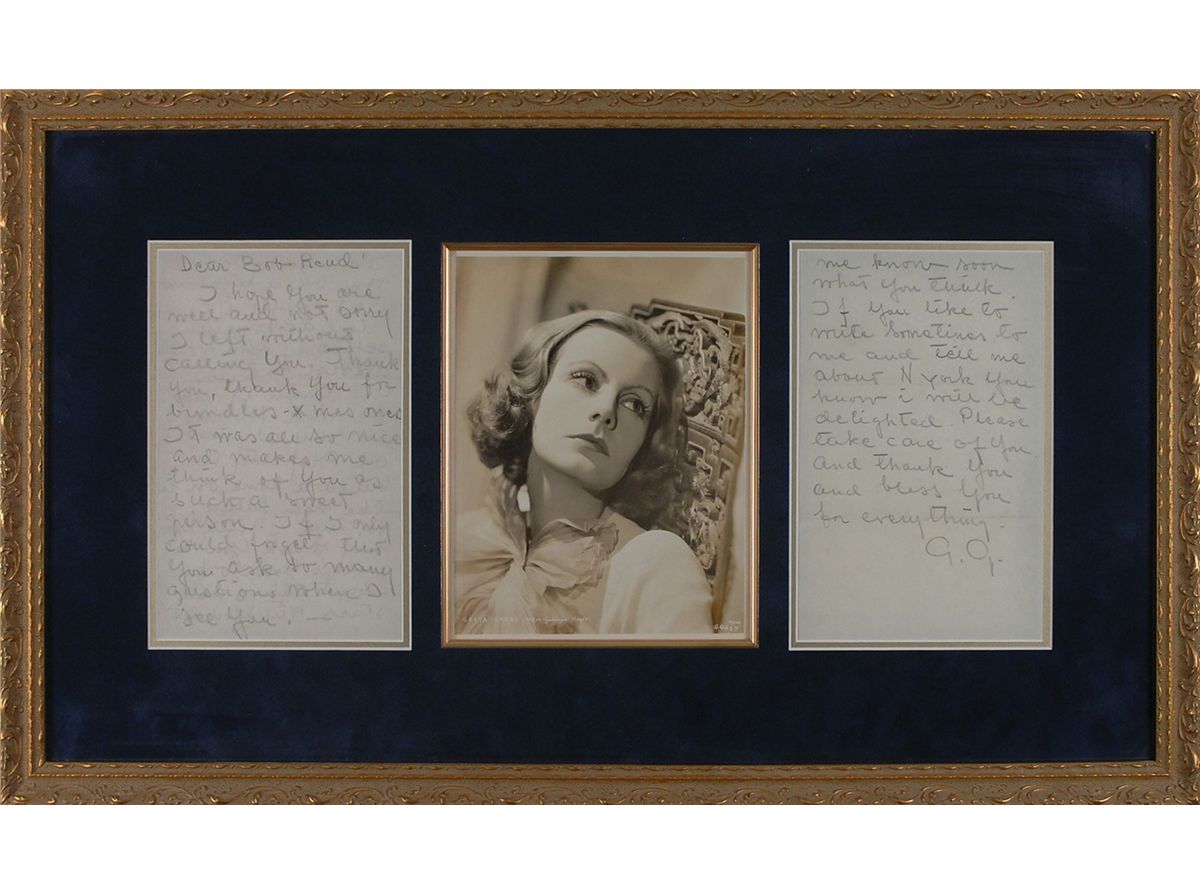 Dear Bob Reud!
I hope you are
well and not sorry
I left without
calling you. Thank
you, thank you for
bundles - Xmas ones
It was all so nice
and makes me
think of you as
such a sweet
person. If I only
could forget that
you ask so many
qustions when I
see you. —
GRETA GARBO Metro Goldwyn Mayer
MGM
me know soon
what you think.
If you like to
write sometimes to
me and tell me
about N york you
know i will be
delighted. Please
take care of you.
And thank you
and bless you
for everything.
G.G.